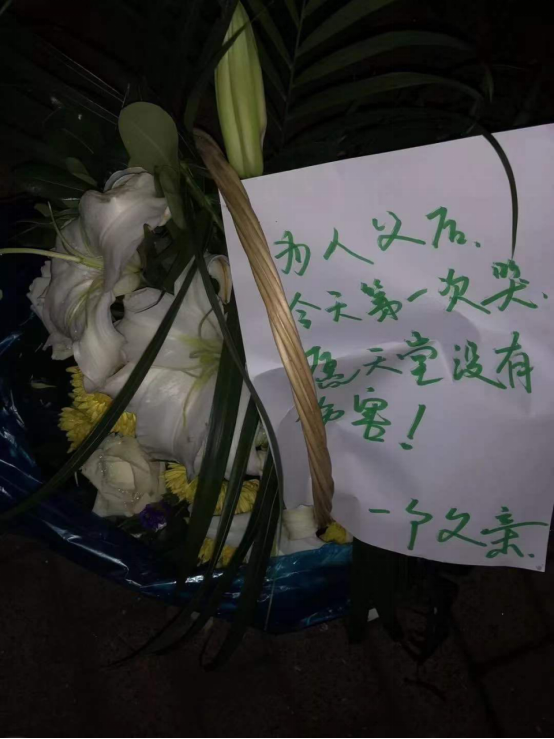 为人父后、
今天第一次哭.
愿天堂没有
害!
一个父亲.